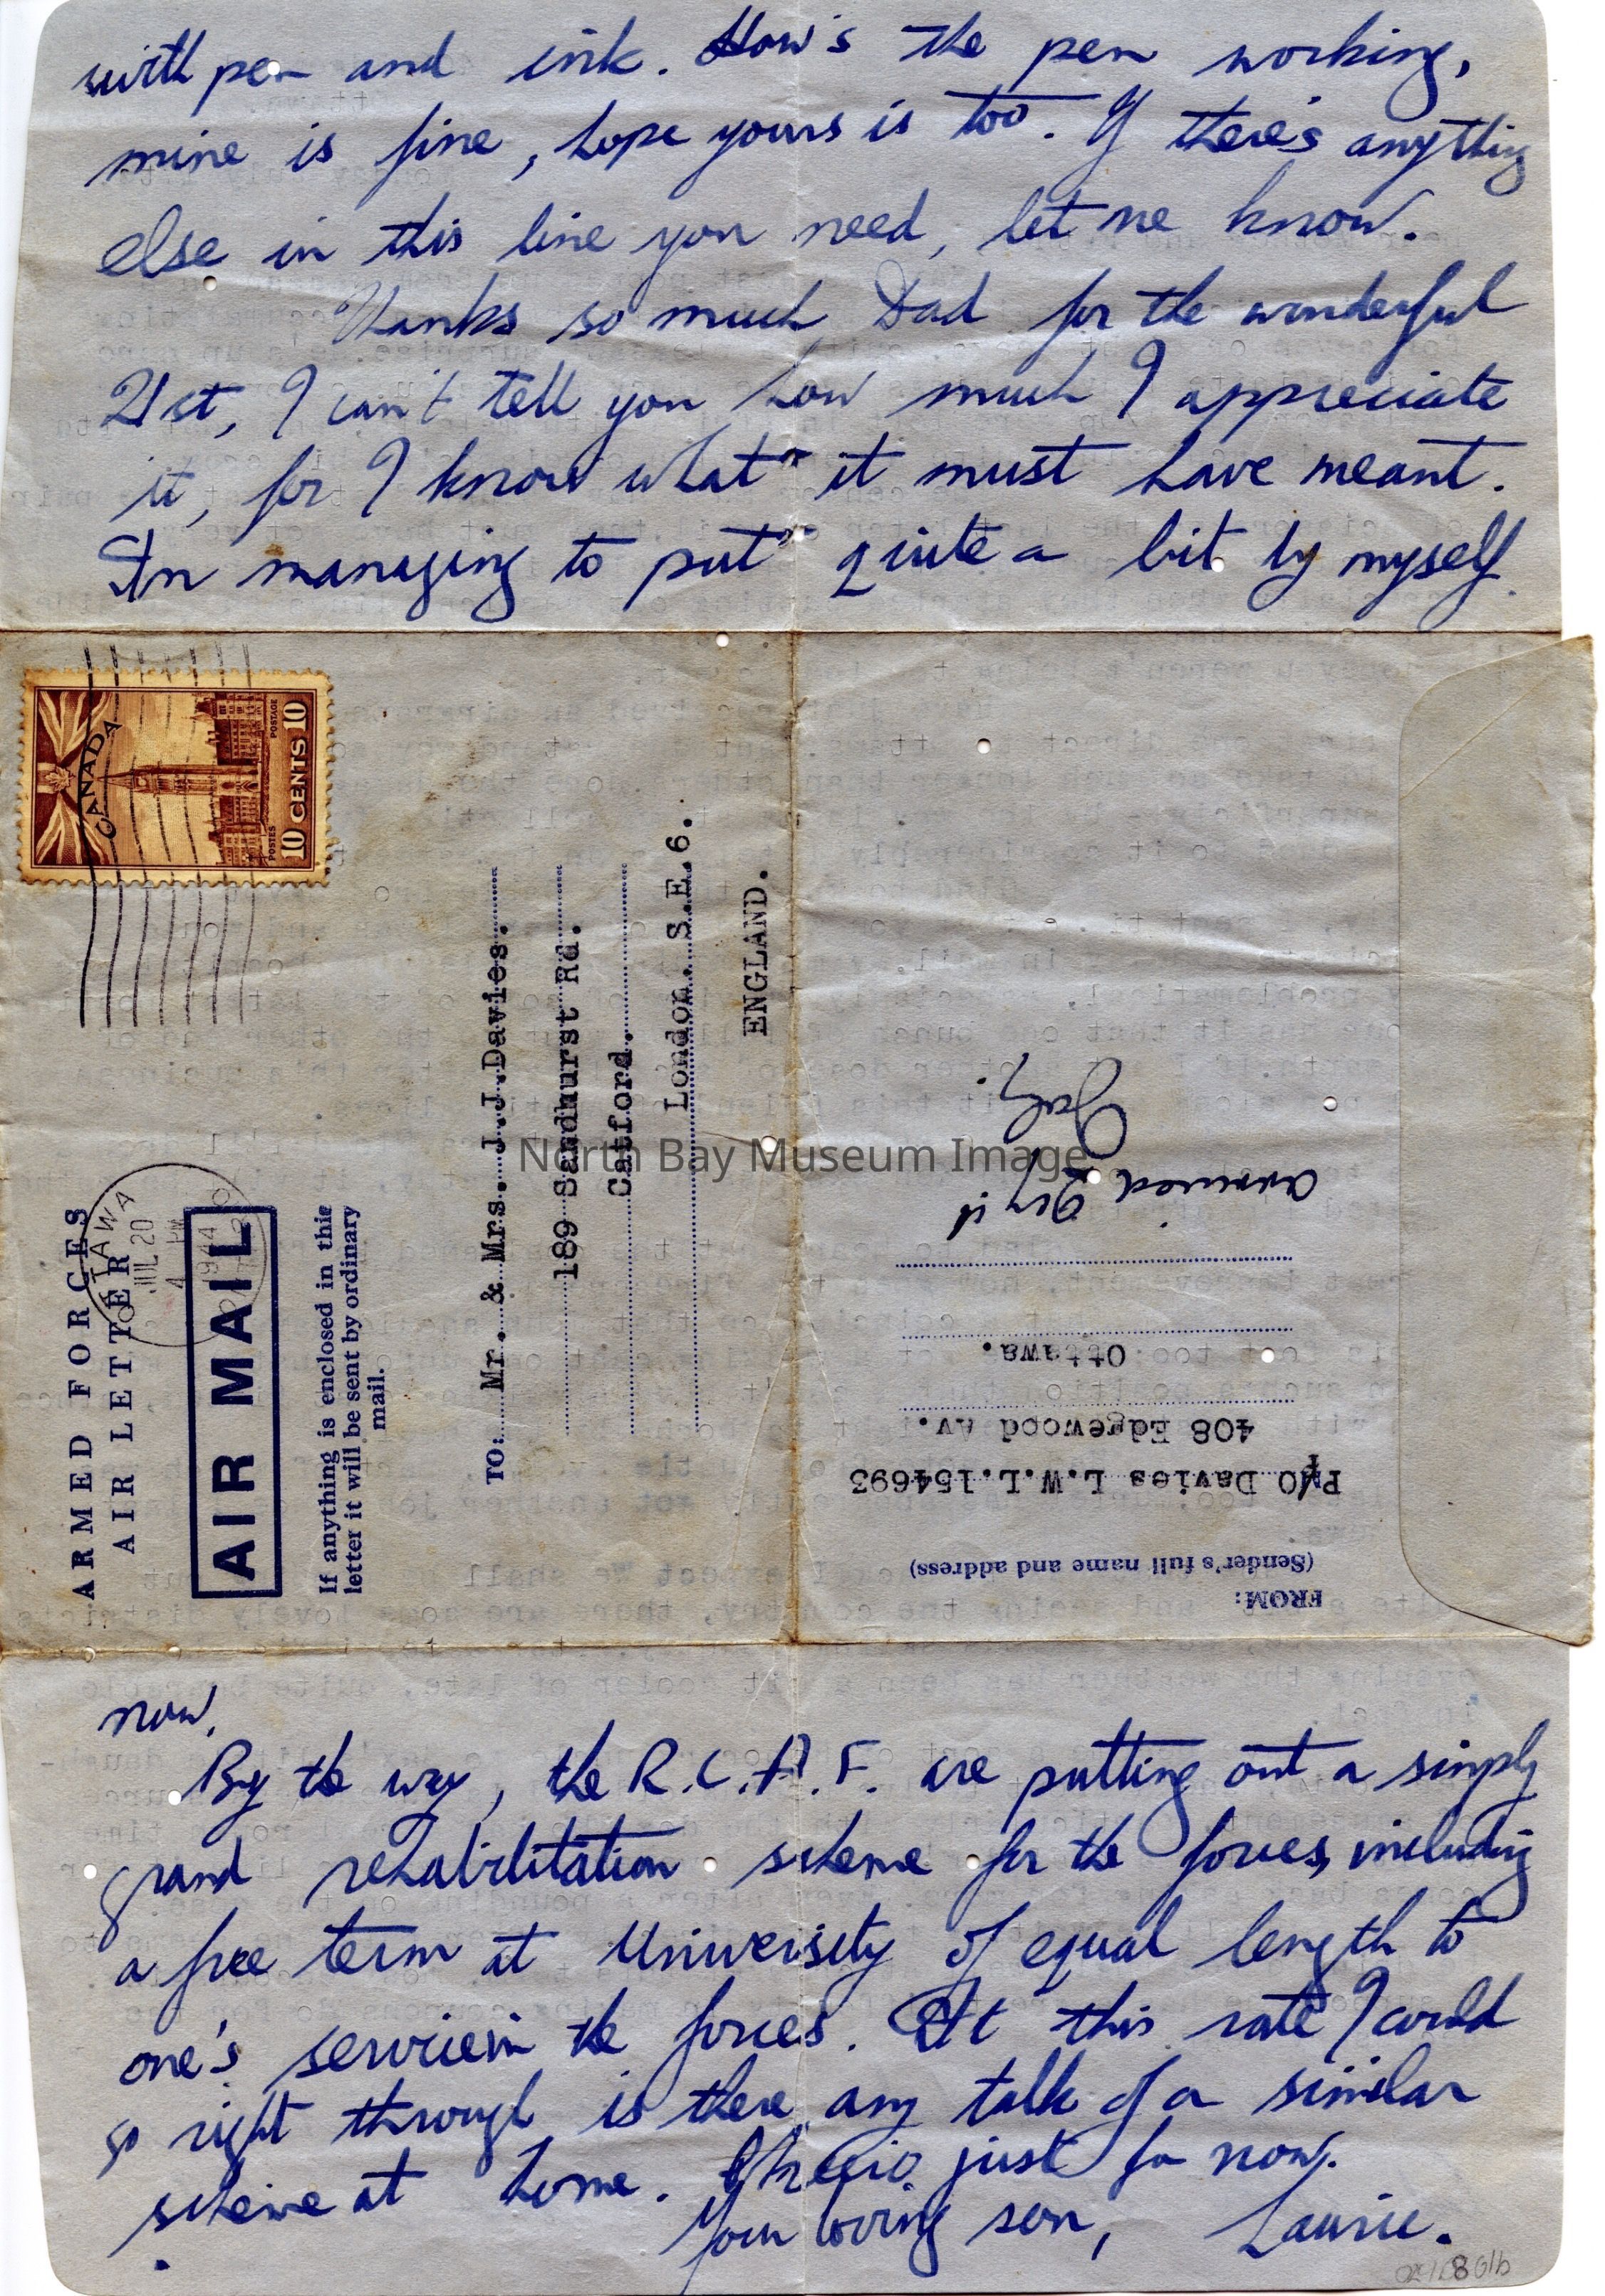 with pen and ink. How's the pen working,
mine is fine, hope yours is too. If there's anything
else in this line you need, let me know.
Thanks so much Dad for the wonderful
21st, I can't tell you how much I appreciate
it, for I know what it must have meant.
I'm managing to put quite a bit by myself
CANADA
POSTES POSTAGE
10 CENTS 10
ARMED FORCES
AIR LETTER
AIR MAIL
OTTAWA
JUL 20
4 PM
1944
If anything is enclosed in this
letter it will be sent by ordinary
mail.
TO: Mr. & Mrs. J.J.Davies.
189 Sandhurst Rd.
Catford.
London. S.E.6.
ENGLAND.
FROM:
(Sender's full name and address)
P/O Davies L.W.L.154693
408 Edgewood Av.
Ottawa.
North Bay Museum Image
now.
By the way, the R.C.A.F. are putting out a simply
grand rehabilitation scheme for the forces, including
a free term at University of equal length to
one's service in the forces. At this rate I could
go right through is there any talk of a similar
scheme at home. Cheerio just for now.
Your loving son, Laurie.